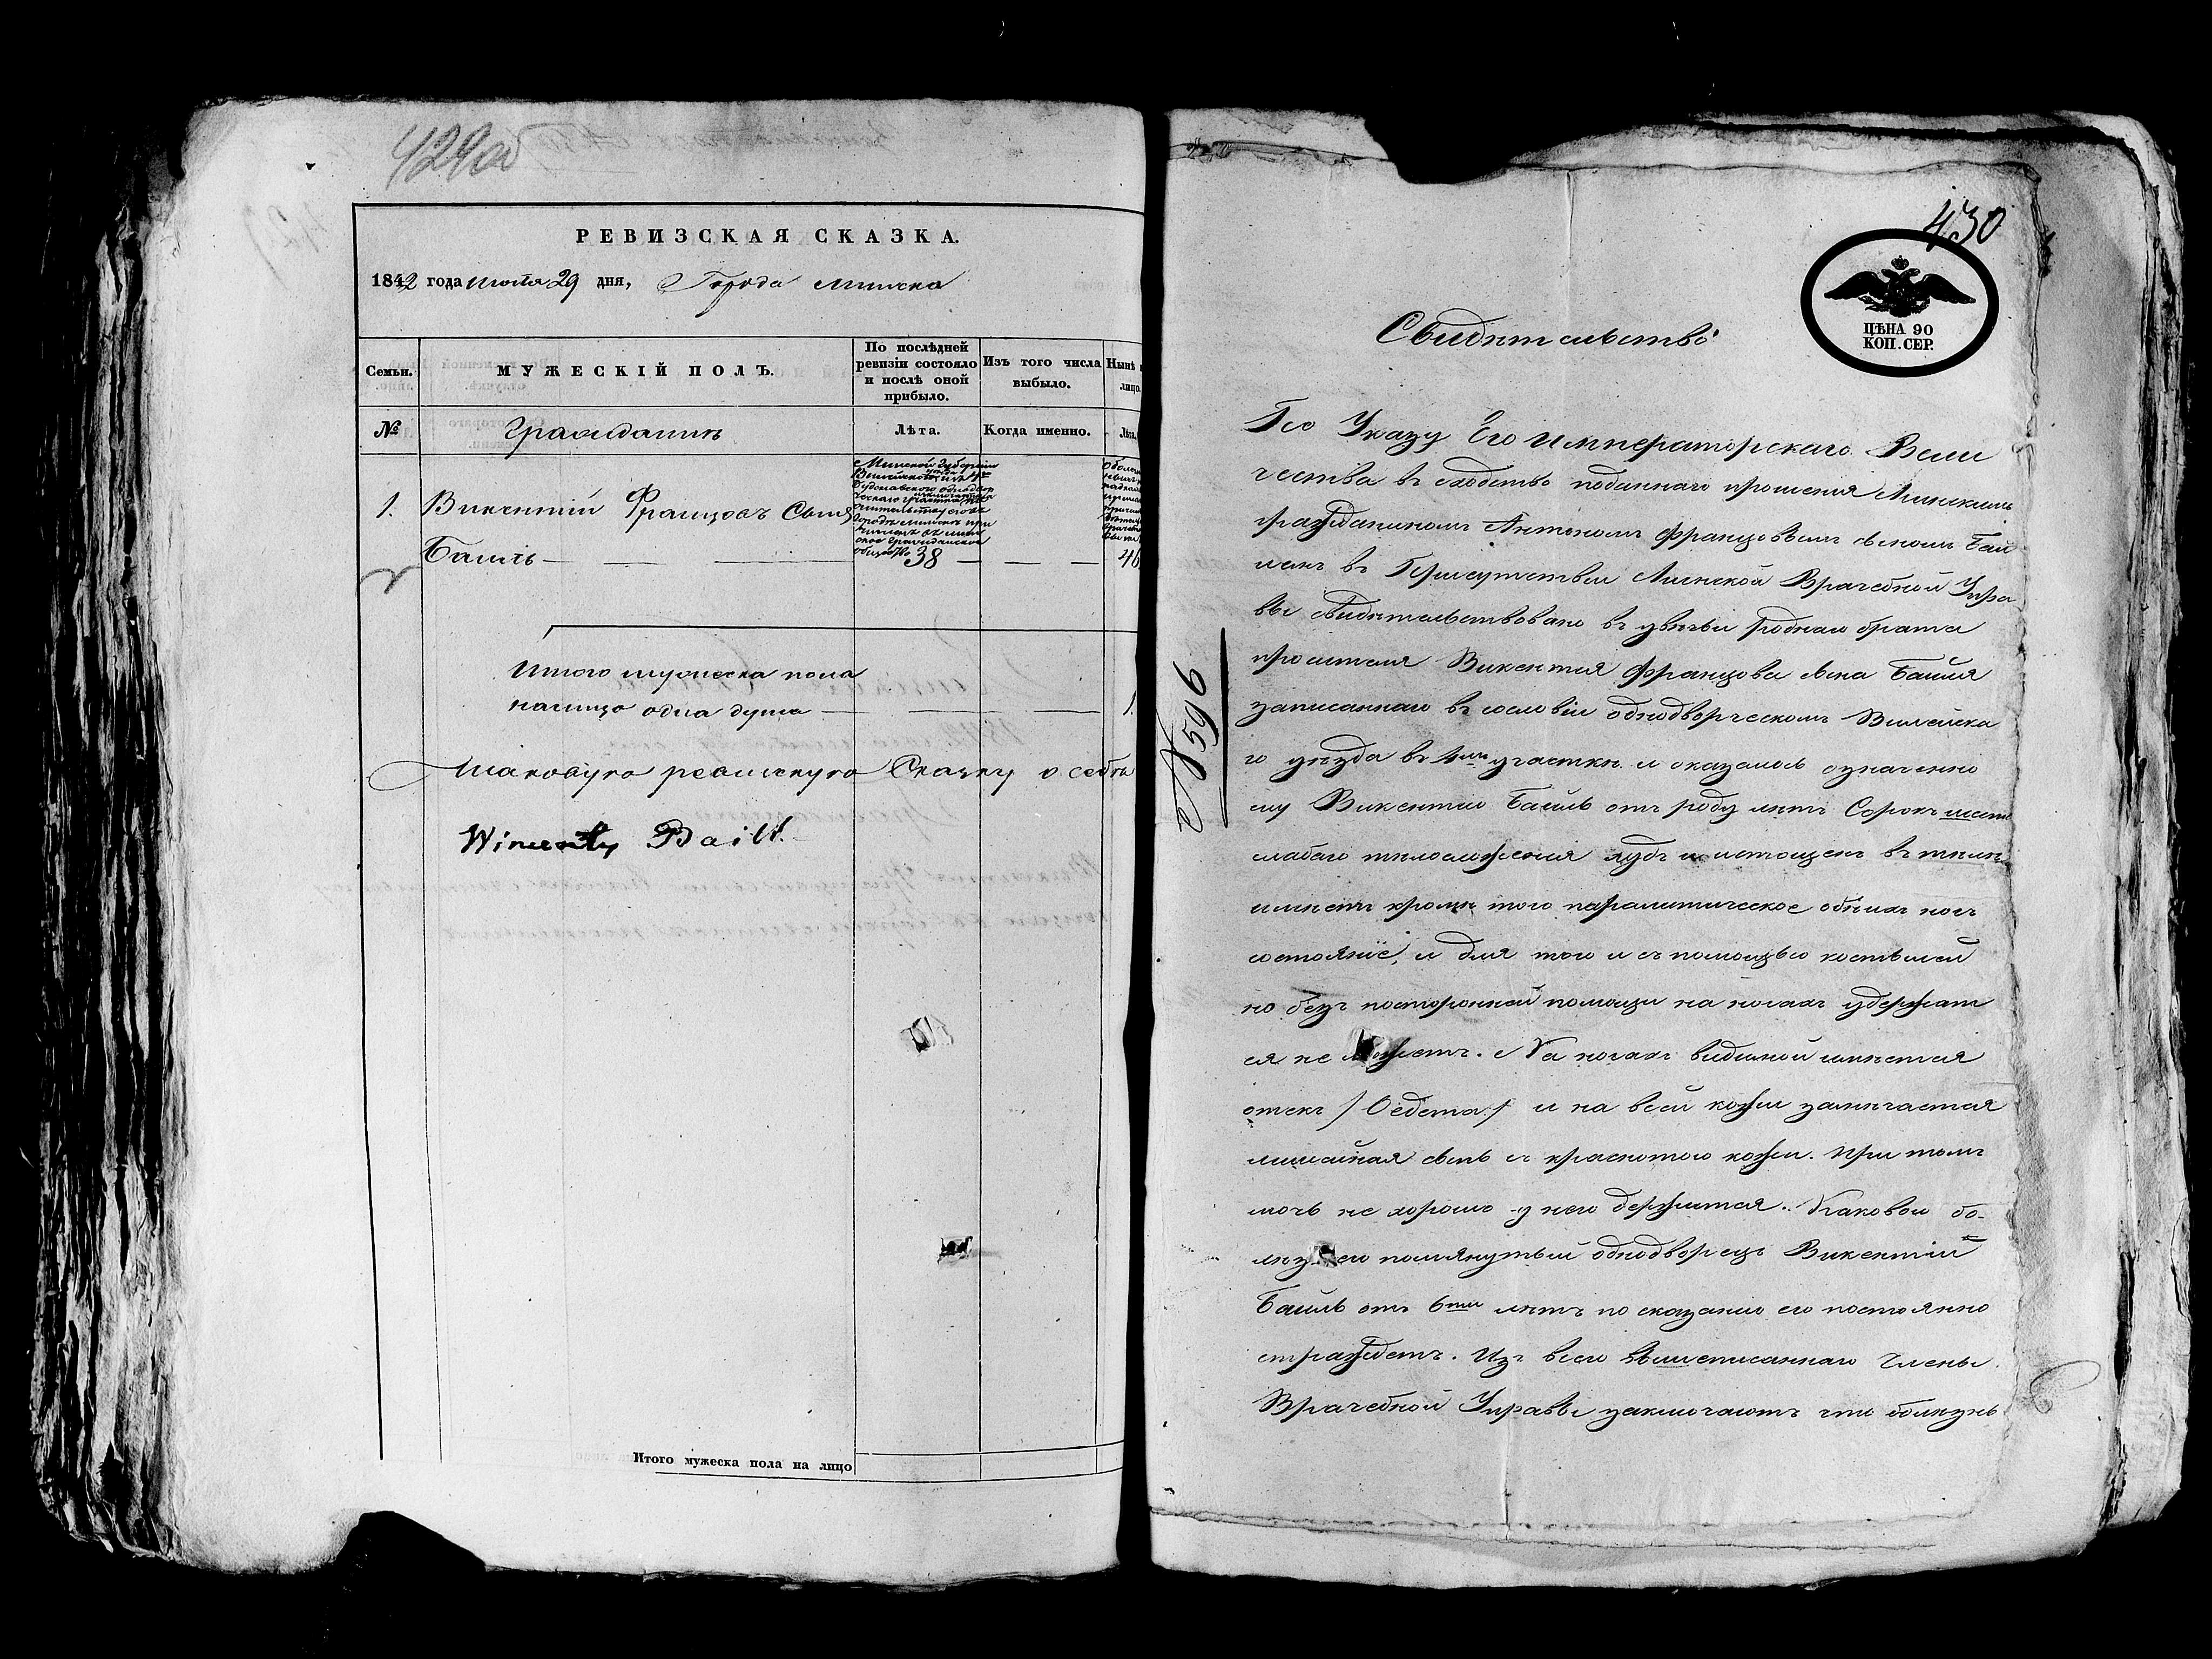 429об
РЕВИЗСКАЯ СКАЗКА.
1842 года июля 29 дня, Города Минска
Семьи.
МУЖЕСКІЙ ПОЛЪ.
По послѣдней
ревизіи состояло
и послѣ оной
прибыло.
Изъ того числа
выбыло.
Нынѣ
лицо.
№
Гражданинъ
Лѣта.
Когда именно.
Лѣта.
Минской Губерніи
1. Викентій Францовъ Сынъ
Баиль — 38 — 46
Итого мужеска пола
налицо одна душа — 1.
Таковую ревизскую Сказку о себѣ
Wincenty Baill.
Итого мужеска пола на лицо
430
ЦѢНА 90
КОП. СЕР.
Свидѣтельство
№ 596
По Указу Его Императорскаго Вели
чества въ сходство поданнаго прошенія Минскимъ
гражданиномъ Антономъ Францовымъ сыномъ Баи
лемъ въ Присутствіи Минской Врачебной Упра
вы свидѣтельствовано въ увѣчьи роднаго брата
просителя Викентія Францова сына Баиля
записаннаго въ сословіи однодворческомъ Вилейска
го уѣзда въ 4мъ участкѣ и оказалось означенно
му Викентію Баиль отъ роду лѣтъ Сорокъ шесть
слабаго тѣлосложенія худъ и истощенъ въ тѣлѣ
имѣетъ кромѣ того паралитическое обѣихъ ногъ
состояніе, и для того и съ помощью костылей
но безъ посторонней помощи на ногахъ удержат
ся не можетъ. На ногахъ видимой имѣется
отекъ / Oedema / и на всей кожи замѣчается
лишайная сыпь съ краснотою кожи. При томъ
мочь не хорошо у него держится. Каковою бо-
лѣзнею помянутый однодворецъ Викентій
Баиль отъ 6ти лѣтъ по сказанію его постоянно
страждетъ. Изъ всего вышеписаннаго Члены
Врачебной Управы заключаютъ что болѣзнь